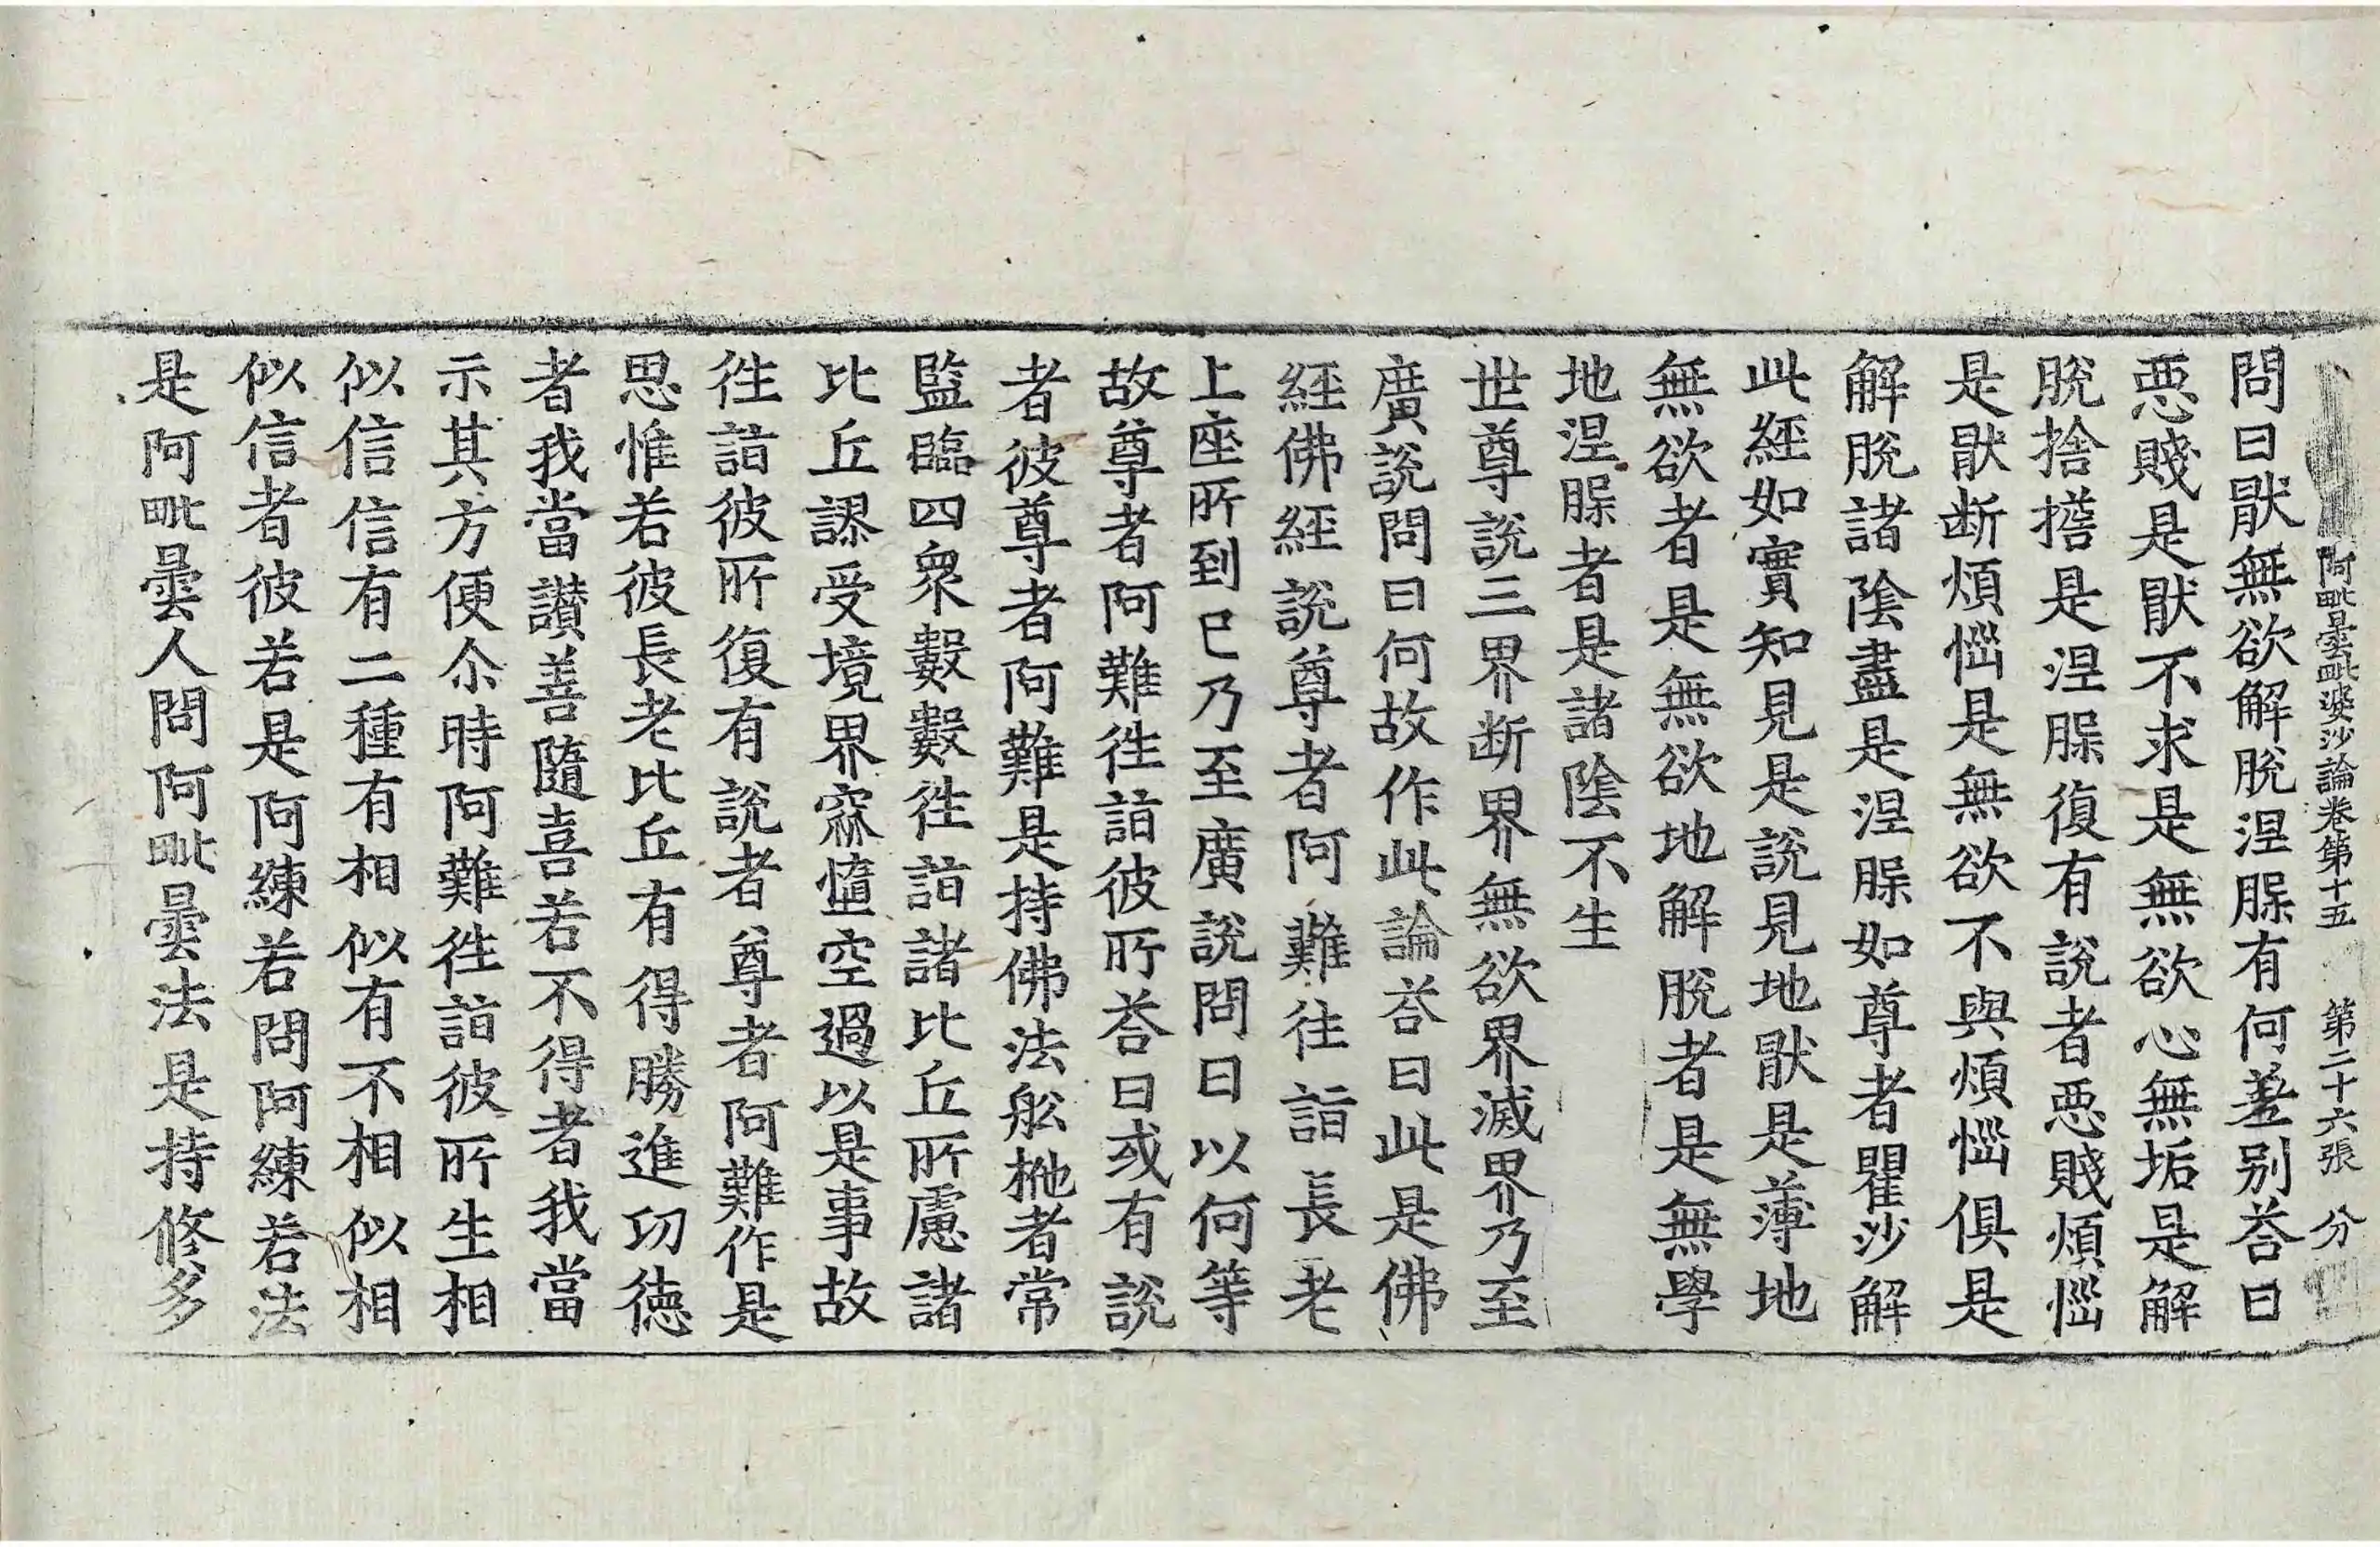 阿毗曇毗婆沙論卷第十五 第二十六張 分
問曰猒無欲解脫涅槃有何差别荅曰
惡賤是猒不求是無欲心無垢是解
脫捨擔是涅槃復有說者惡賤煩惱
是猒断煩惱是無欲不與煩惱俱是
解脫諸陰盡是涅槃如尊者瞿沙解
此經如實知見是說見地猒是薄地
無欲者是無欲地解脫者是無學
地涅槃者是諸陰不生
世尊說三界断界無欲界滅界乃至
廣說問曰何故作此論荅曰此是佛
經佛經說尊者阿難往詣長老
上座所到已乃至廣說問曰以何等
故尊者阿難徃詣彼所荅曰或有說
者彼尊者阿難是持佛法舩栧者常
監臨四衆數數徃詣諸比丘所慮諸
比丘謬受境界寐憻空過以是事故
徃詣彼所復有說者尊者阿難作是
思惟若彼長老比丘有得勝進功德
者我當讃善隨喜若不得者我當
示其方便尒時阿難徃詣彼所生相
似信信有二種有相似有不相似相
似信者彼若是阿練若問阿練若法
是阿毗曇人問阿毗曇法是持修多